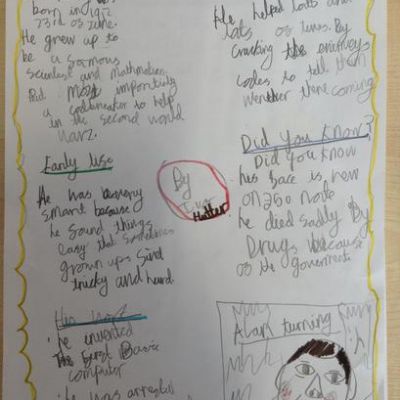 born in 1912
23rd of June.
He grew up to
be a famous
scientist and mathmatician
But most importinly
a codebreaker to help
in the second world
War2.
Early life
He was very
smart because
he found things
easy that sometimes
grown ups find
tricky and hard
His work
he invented
The first Basic
computer
he was arrested
He helped lots and
lots of lives. By
cracking the enimeys
codes to tell them
wenther there coming
By
Hatter
Did you know?
Did you know
his face is now
on a 50 note
he died sadly By
Drugs because
of the government
Alan turning